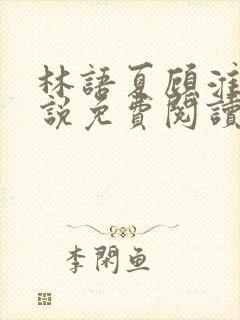 林語夏顧淮
說免費閱讀
李閑魚